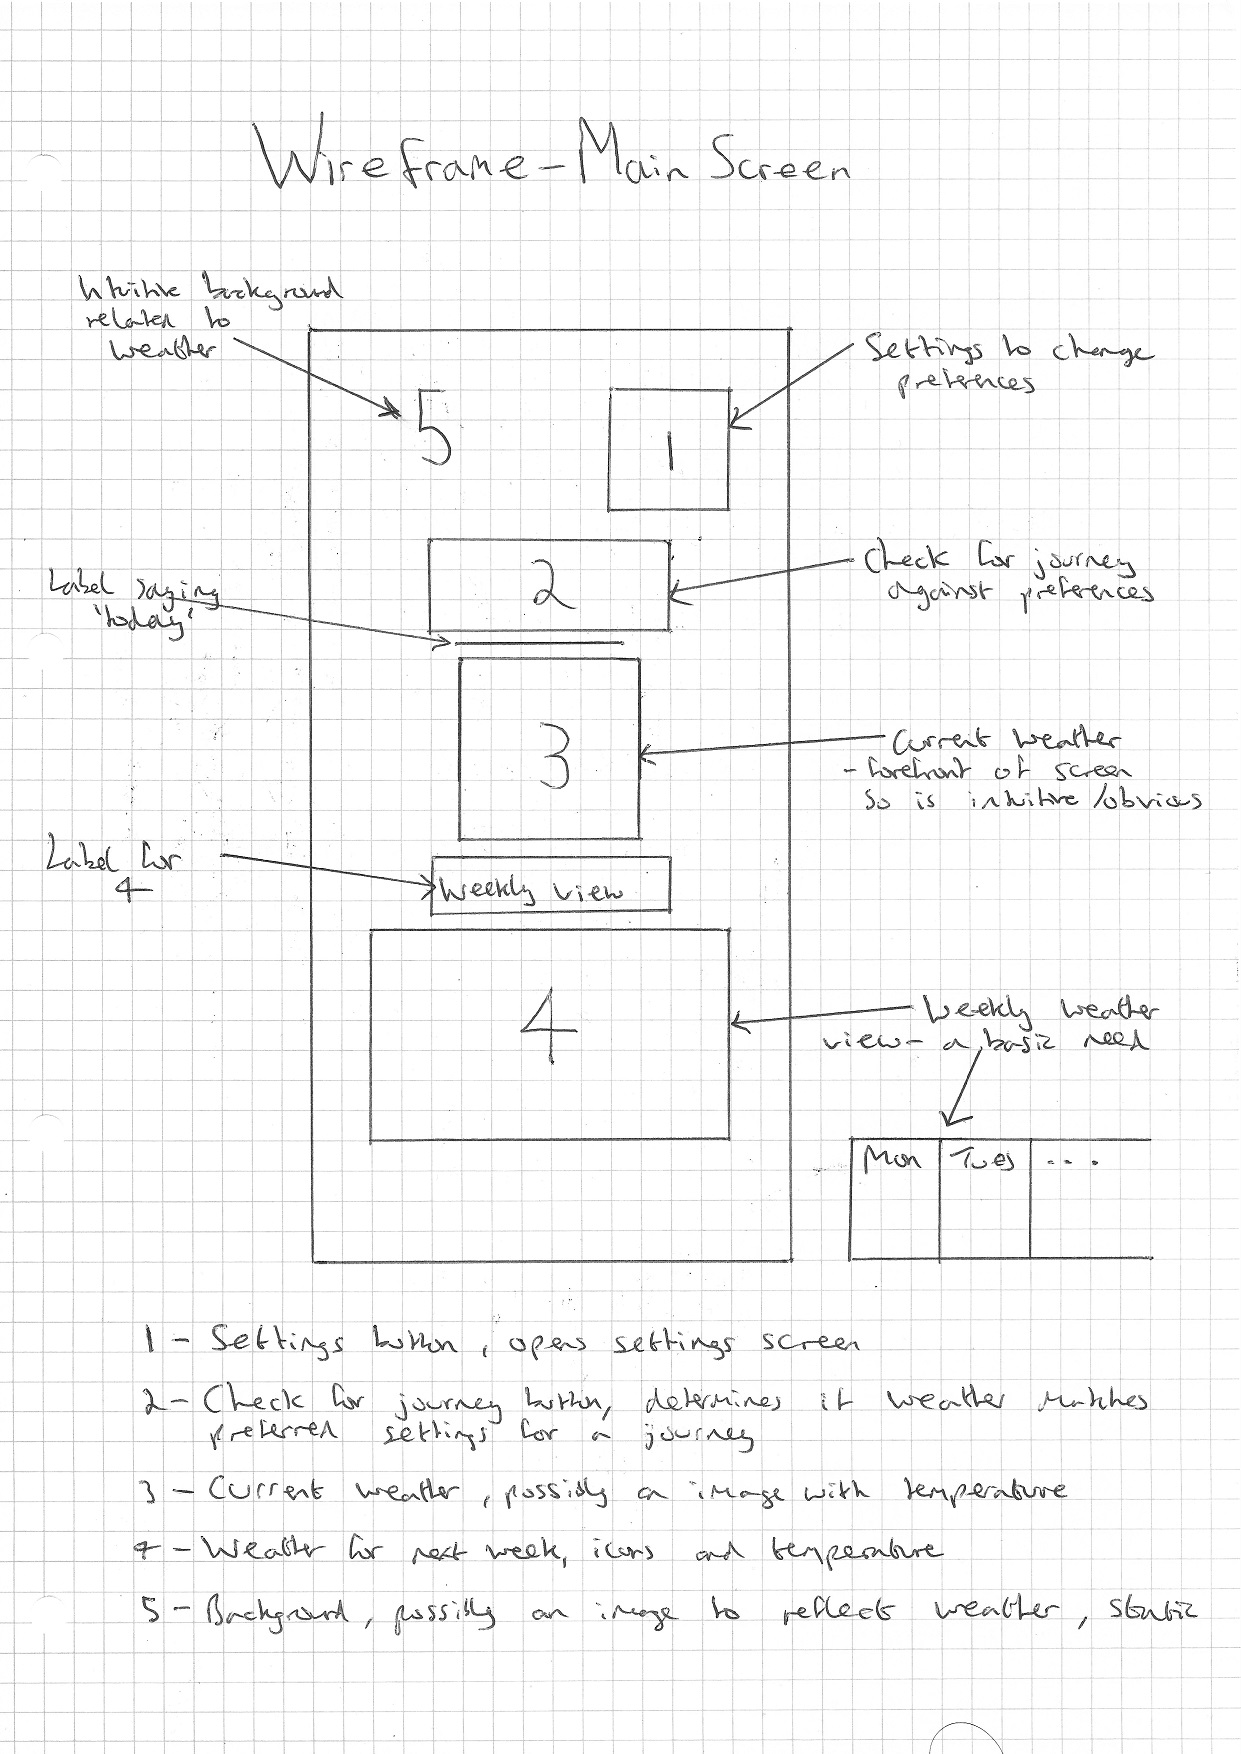 Wireframe - Main Screen
Intuitive background
related to
weather
Settings to change
preferences
5
1
Check for journey
against preferences
Label saying
'today'
2
3
Current weather
- forefront of screen
So is intuitive/obvious
Label for
4
Weekly view
4
Weekly weather
view - a basic need
Mon Tues ...
1 - Settings button, opens settings screen
2 - Check for journey button, determines if weather matches
preferred settings for a journey
3 - Current weather, possibly an image with temperature
4 - Weather for next week, icons and temperature
5 - Background, possibly an image to reflect weather, static